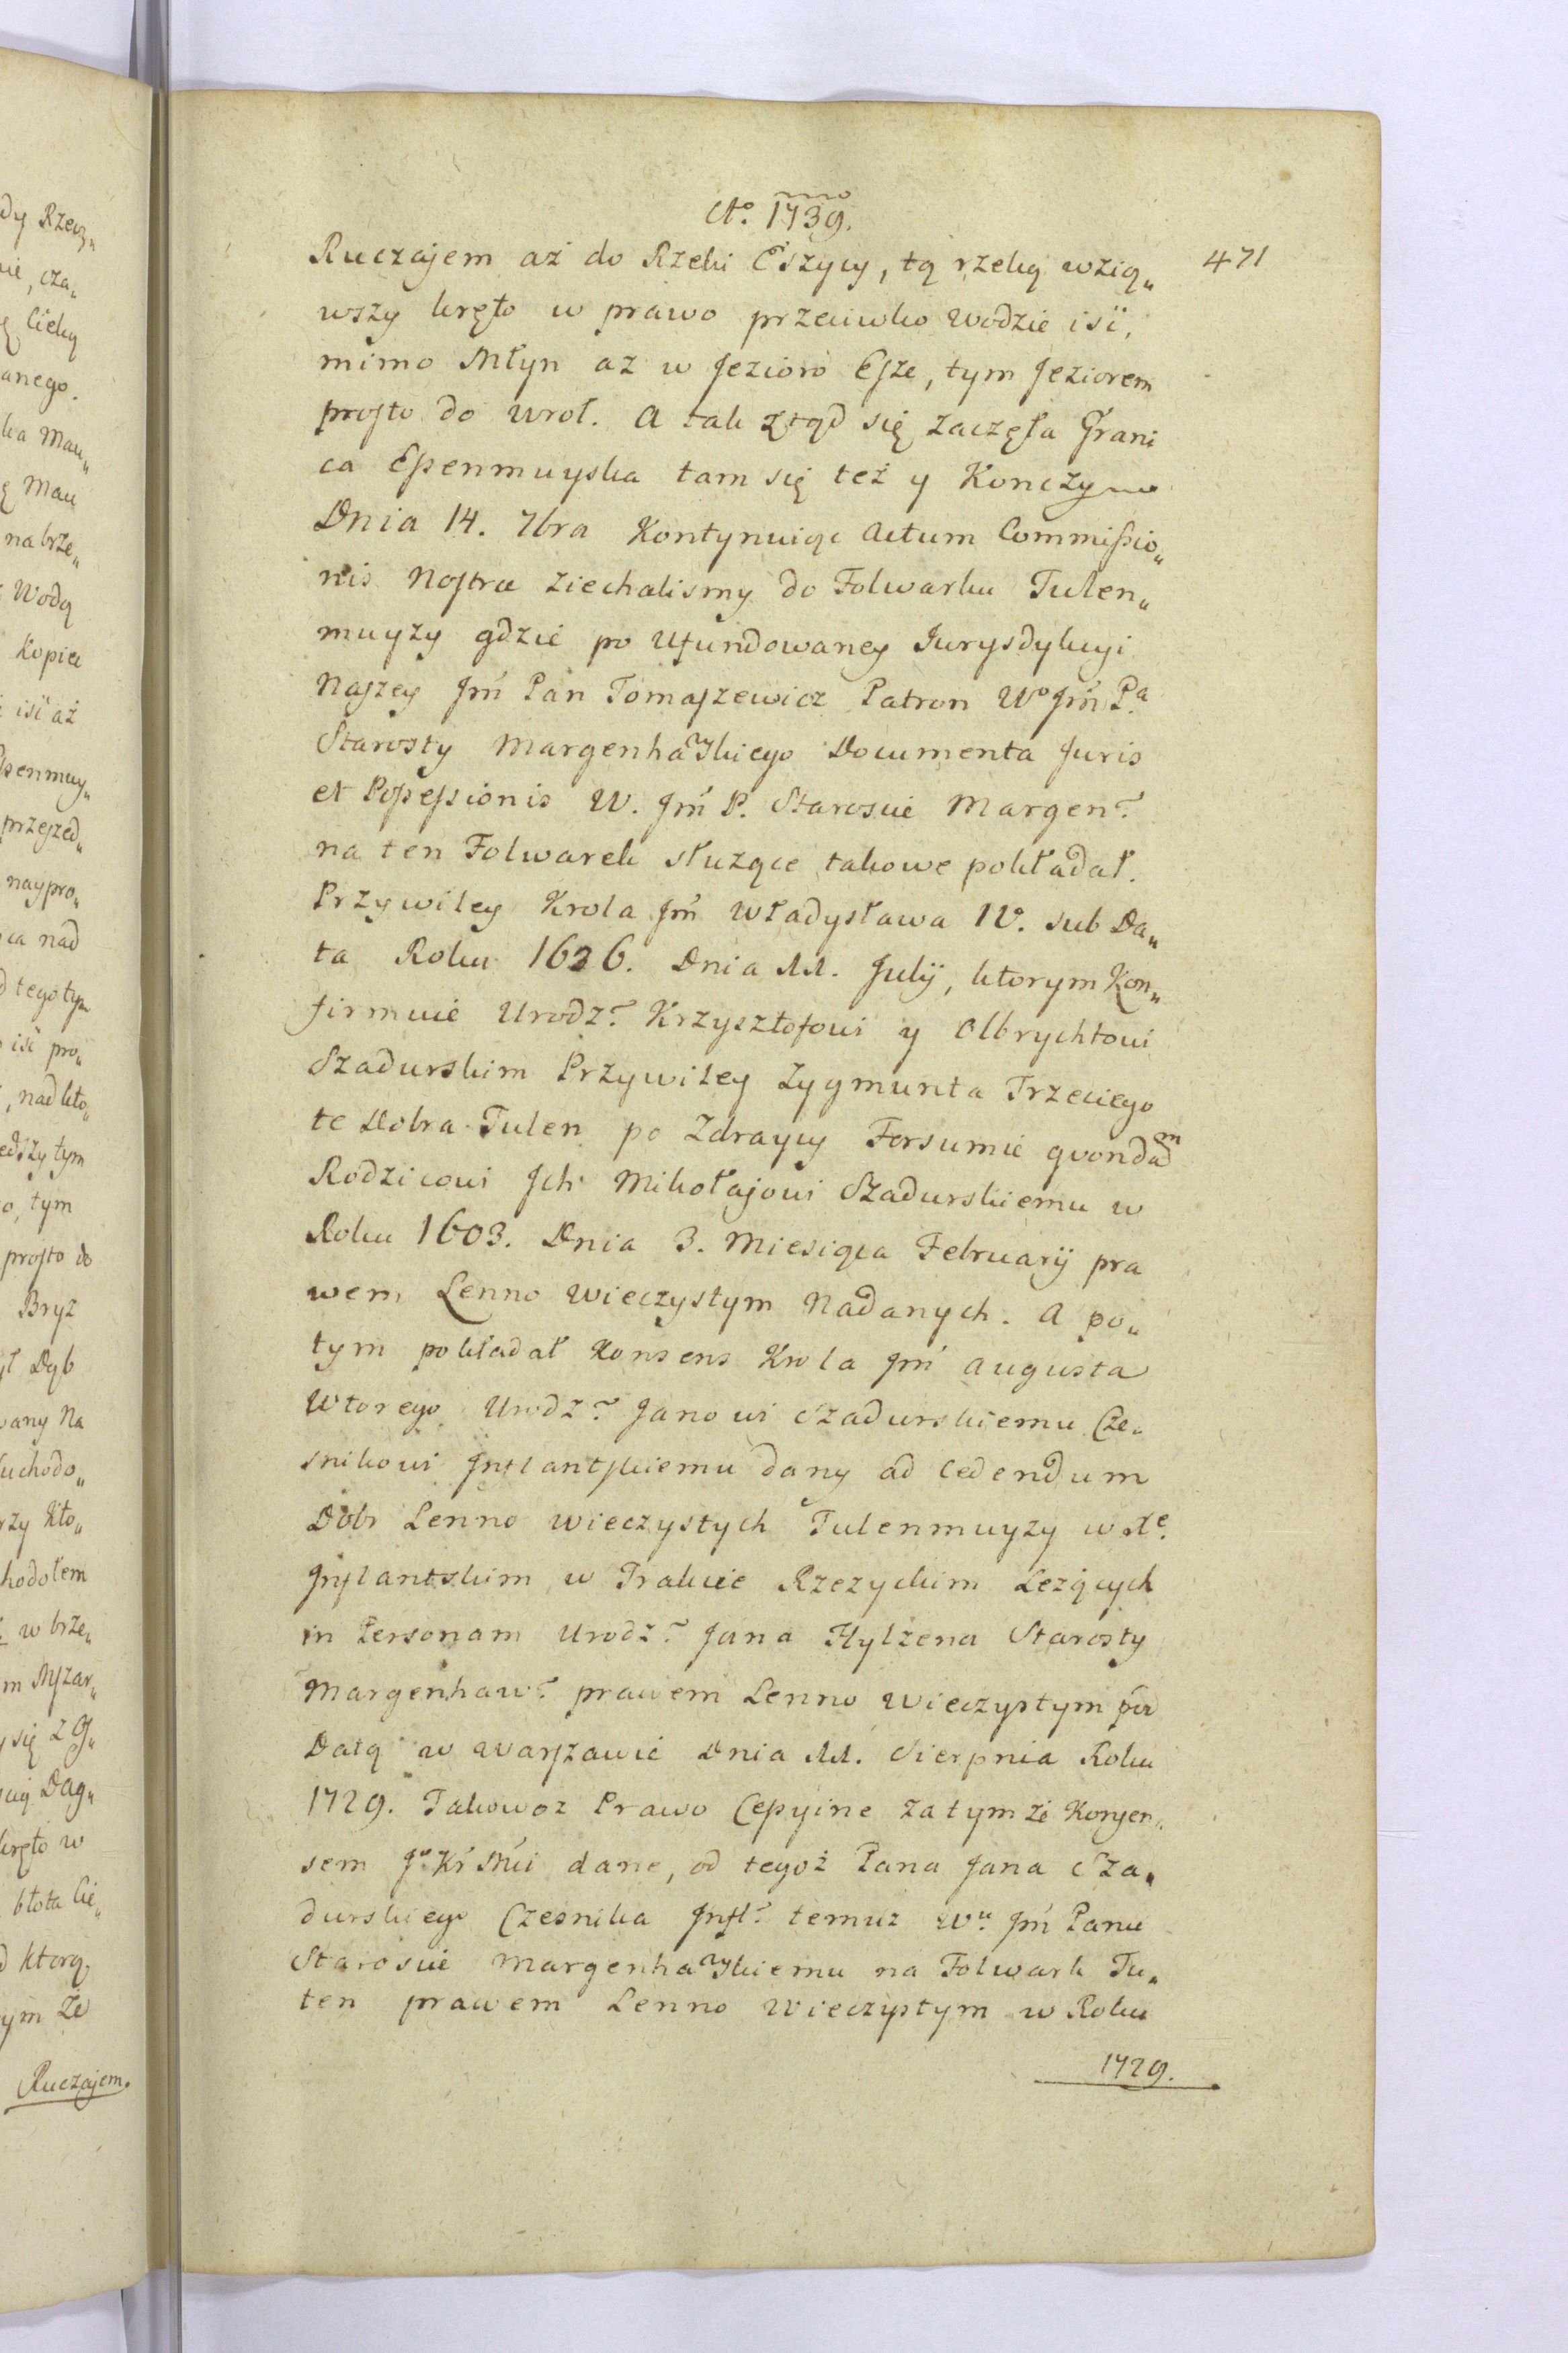 Ao. 1739.
471
Ruczajem aż do Rzeki Eszycy, tą rzeką wzią„
wszy kręto w prawo przeciwko wodzie iść,
mimo Młyn aż w Jezioro Esze, tym Jeziorem
prosto do wrot. A tak ztąd się zaczęła Grani
ca Essenmuyska tam się też y Konczy
Dnia 14. 7bra Kontynuiąc Actum Commissio„
nis Nostræ ziechalismy do Folwarku Tulen„
muyzy gdzie po Ufundowaney Jurysdykcyi
Naszey Jm Pan Tomaszewicz Patron Wo Jm Pa
Starosty Margenhauskiego Documenta Juris
et Possessionis W. Jm P. Staroscie Margen.
na ten Folwarek służące takowe pokładał.
Przywiley Krola Jm Władysława IV. sub Da„
ta Roku 1636. Dnia 11. Julij, ktorym Kon„
firmuie Urodz. Krzysztofowi y Olbrychtowi
Szadurskim Przywiley Zygmunta Trzeciego
te Dobra Tulen po Zdraycy Forsumie qvondam
Rodzicowi Ich Mikołajowi Szadurskiemu w
Roku 1603. Dnia 3. Miesiąca Februarij pra
wem Lenno Wieczystym Nadanych. A po„
tym pokładał Konsens Krola Jm Augusta
Wtorego Urodz. Janowi Szadurskiemu Cze„
snikowi Inflantskiemu dany ad cedendum
Dobr Lenno wieczystych Tulenmuyzy w Xe.
Inflantskim w Trakcie Rzezyckim Leżących
in Personam Urodz. Jana Hylżena Starosty
Margenhaw. prawem Lenno Wieczystym pod
Datą w Warszawie Dnia 11. Sierpnia Roku
1729. Takowoz Prawo Cessyine za tymże Konsen„
sem Jo Kr Mci dane, od tegoż Pana Jana Sza„
durskiego Czesnika Infl. temuż Wu. Jm Panu
Staroscie Margenhauskiemu na Folwark Tu„
len prawem Lenno Wieczystym w Roku
1729.
dy Rzecz„
nie, cza„
Cieką
anego.
ka Mau„
Mau
na brze„
Wodą
Kopiec
iść aż
ssenmuy„
przeszed„
naypro„
ca nad
tego tym
iść pro„
, nad kto„
edszy tym
o, tym
prosto do
Bryz
ł Dąb
wany Na
uchodo„
rzy Kto„
hodołem
w brze„
m Mszar„
się z G„
Dag„
kręto w
błota Cie„
ktorą
tym ze
Ruczajem.